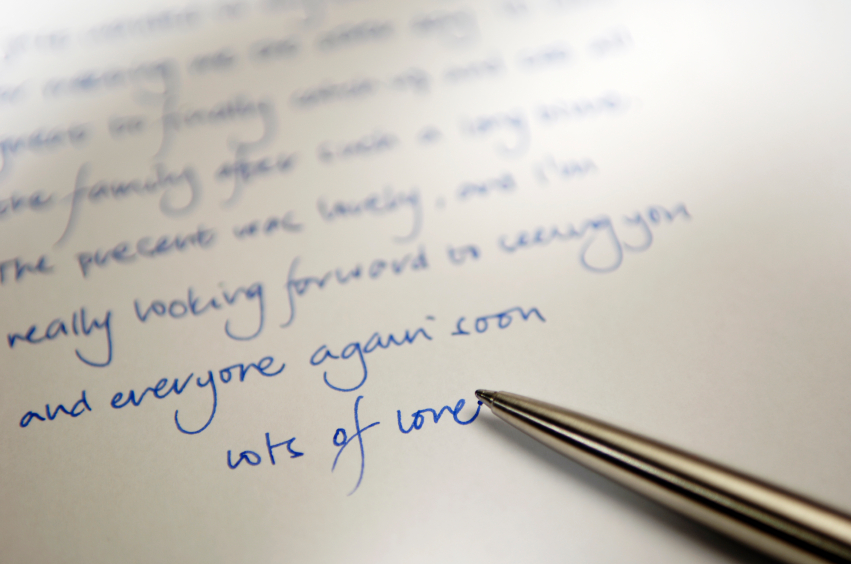 great to finally catch up and see all
the family after such a long time.
The present was lovely, and I'm
really looking forward to seeing you
and everyone again soon
lots of love